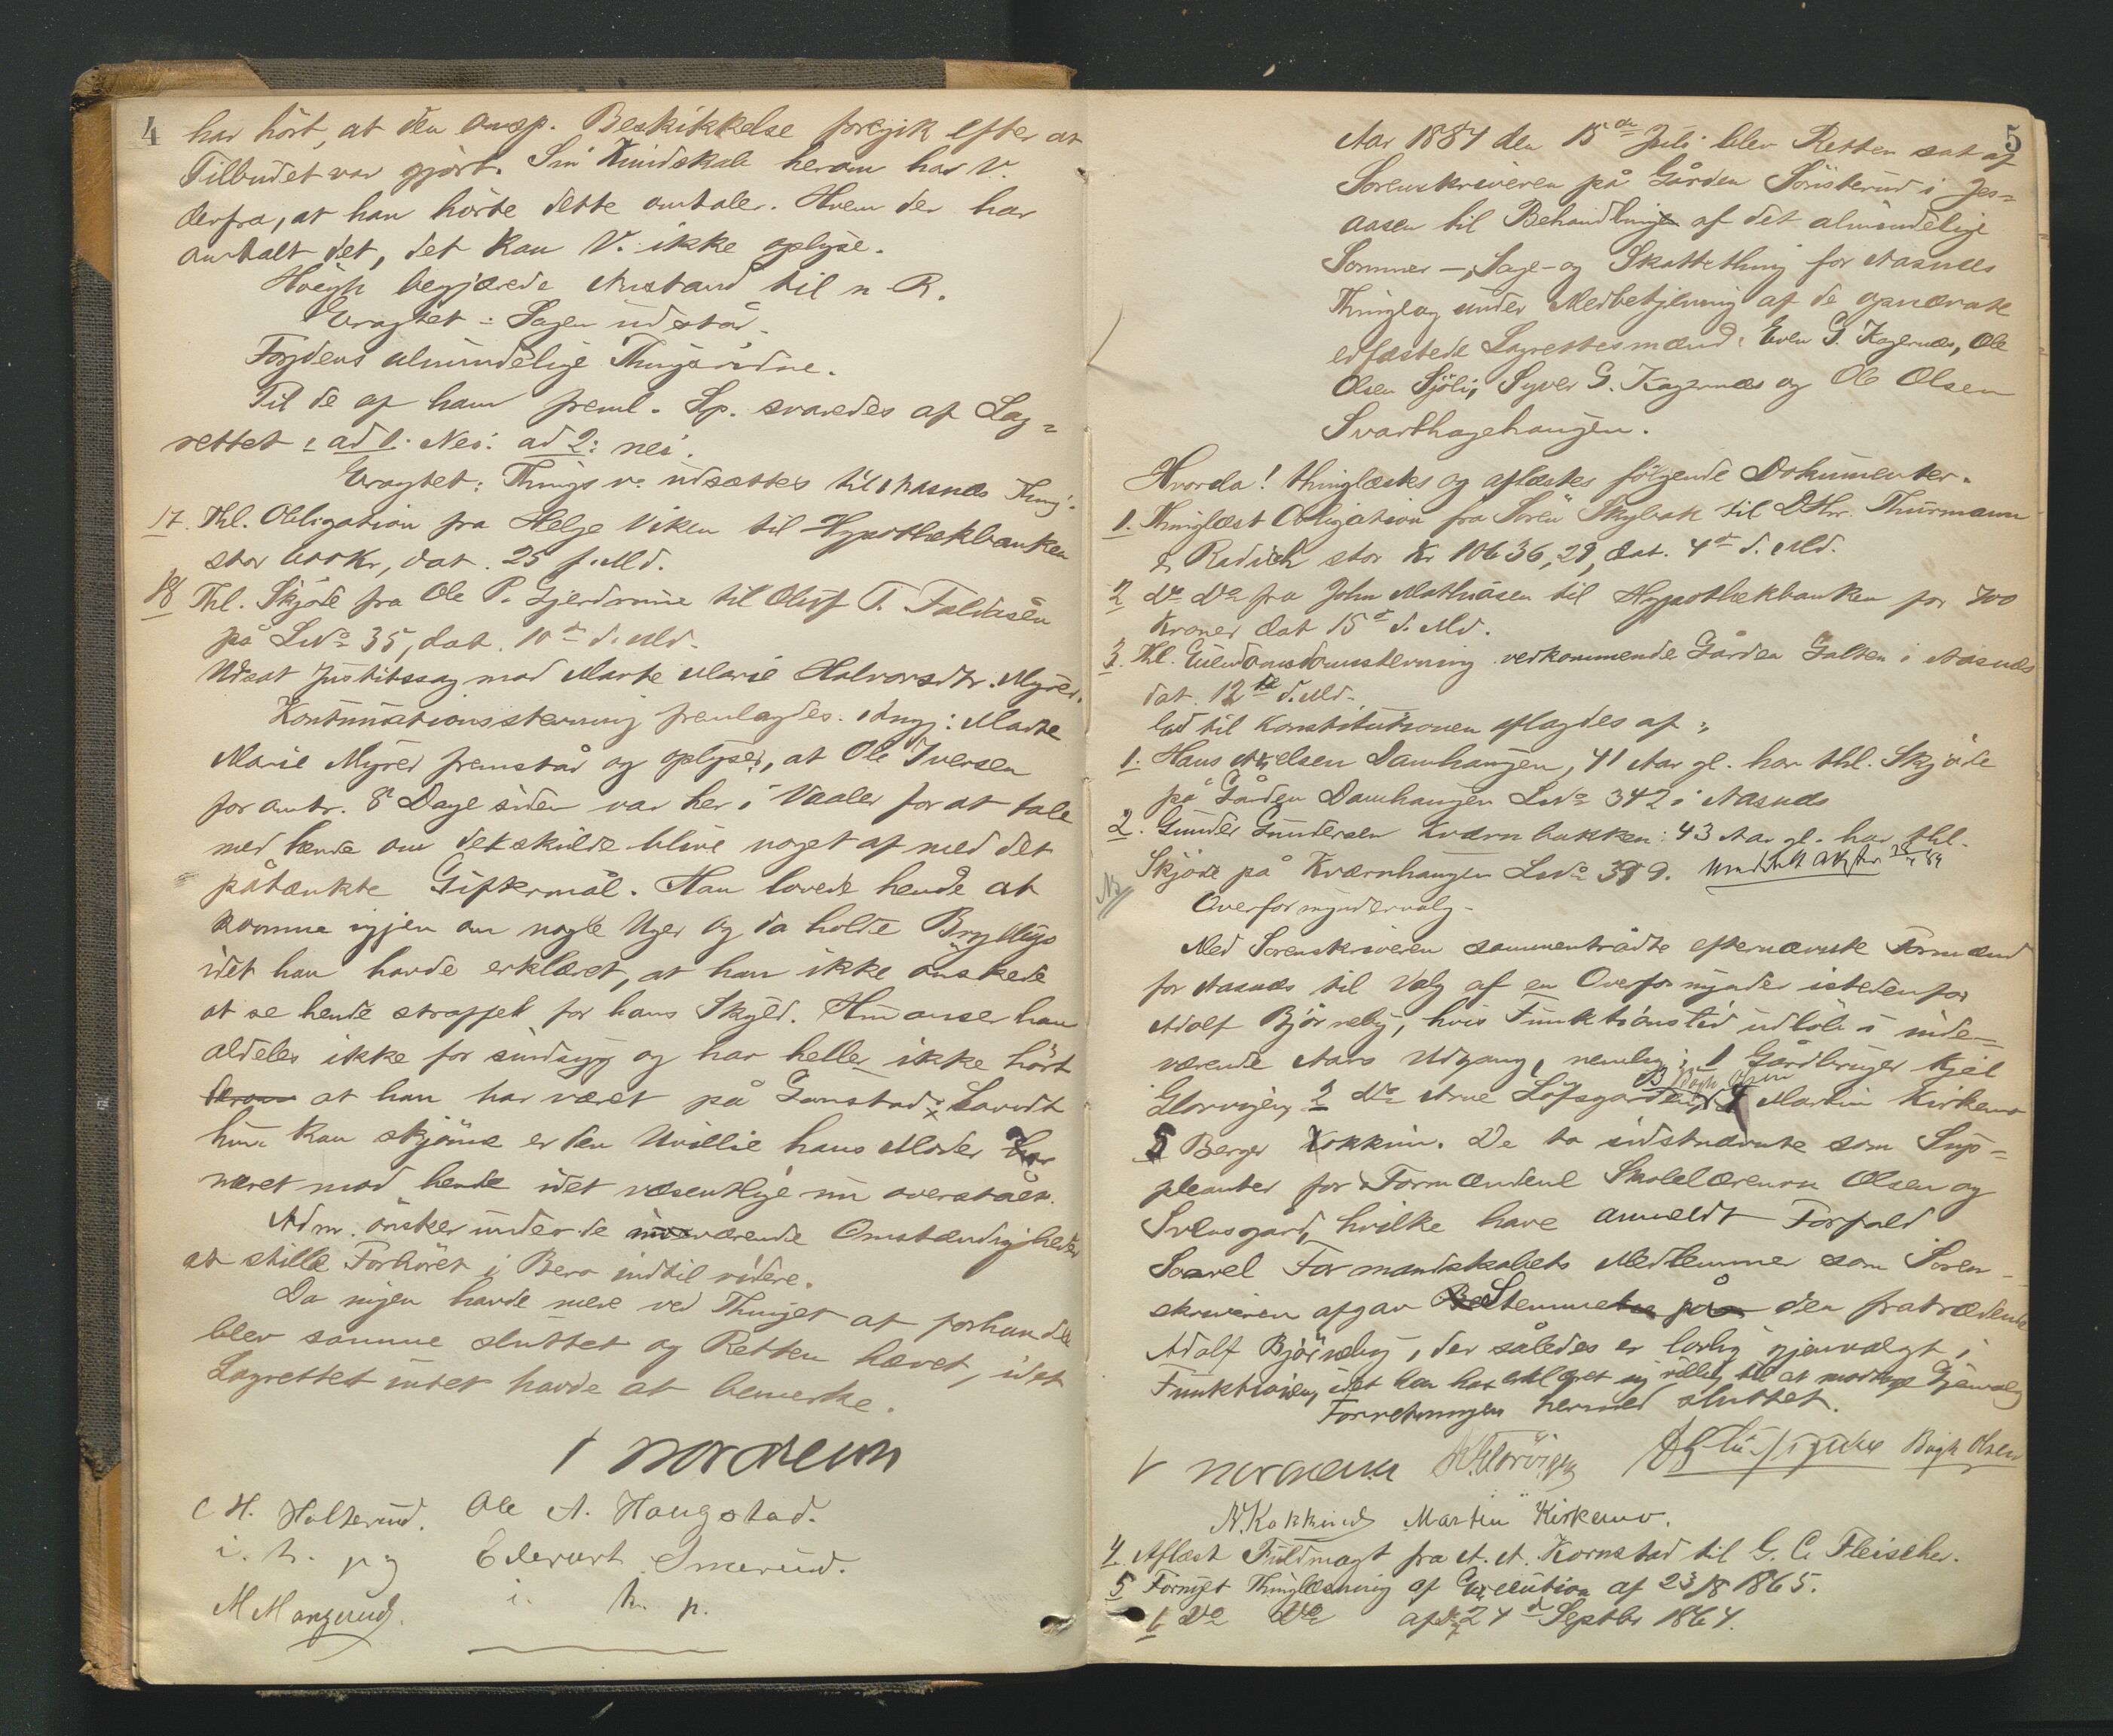 4
har hört, at den omsp. Beskikkelse foregik efter at
Tilbudet var gjort. Sin Kundskab herom har V.
derfra, at han hörte dette omtales. Hvem der har
omtalt det, det kan V. ikke oplyse.
Höegh begjærede Anstand til n. R.
Eragtet: Sagen udstår.
Fogdens almindelige Thingsvidne.
Til de af ham freml. Sp. svaredes af Lag=
rettet: ad 1: Nei: ad 2: nei.
Eragtet: Things v. udsættes til Aasnæs Thing.
17. Thl. Obligation fra Helge Viken til Hypothekbanken
stor 600 Kr, dat. 25 f. Md.
18 Thl. Skjöde fra Ole P. Gjerdrum til Oluf T. Faldaasen
på LNo 35, dat. 10de d. Md.
Udsat Justitssag mod Marte Marie Halvorsdtr. Myrer.
Kontinuationsstevning fremlagdes. Ang: Marte
Marie Myrer fremstår og oplyser, at Ole Iversen
for omtr. 8 Dage siden var her i Vaaler for at tale
med hende om det skulde blive noget af med det
påtænkte Giftermål. Han lovede hende at
komme igjen om nogle Uger og da holde Bryllup
idet han havde erklæret, at han ikke önskede
at se hende straffet for hans Skyld. Hun anser ham
aldeles ikke for sindsyg og har heller ikke hört
derom at han har været på Gaustad. Såvidt
hun kan skjönne er den Uvillie hans Moder har
næret mod hende idet væsentlige nu overstået.
Adm. önsker under de nuværende Omstændigheder
at stille Forhöret i Bero indtil videre.
Da ingen havde mere ved Thinget at forhandle
blev samme sluttet og Retten hævet, idet
Lagrettet intet havde at bemerke.
Nordrum
C H. Holterud. Ole A. Haugstad.
i. h. p g Edevart Smerud.
M Mangrud. i. h. p.
5
Aar 1884 den 15de Juli blev Retten sat af
Sorenskriveren på Gården Sönsterud i Jes=
aasen til Behandling af det almindelige
Sommer-, Sage- og Skattething for Aasnæs
Thinglag under Medbetjening af de opnævnte
edfæstede Lagrettesmænd: Even G. Kagernæs, Ole
Olsen Sjöli, Syver G. Kagernæs og Ole Olsen
Svarthagehaugen.
Hvorda! thinglæstes og aflæstes fölgende Dokumenter.
1. Thinglæst Obligation fra Sören Skybak til DHr. Thurmann
& Radich stor Kr 10636,29, dat. 4de d. Md.
2 Do Do fra John Mathiasen til Hypothekbanken for 700
Kroner dat 15de d. Md.
3. Thl. Eiendomsdomsstevning vedkommende Gården Galten i Aasnæs
dat. 12te d. Md.
Ed til Konstitutionen aflagdes af:
1. Hans Axelsen Damhaugen, 41 Aar gl. har thl. Skjöde
på Gården Damhaugen LNo 342 i Aasnæs
2. Gunder Gundersen Kværnbakken: 43 Aar gl. har thl.
Skjöde på Kværnhaugen LNo 389. Meddelt
Nb
Overformyndervalg.
Med Sorenskriveren sammentrådte efternævnte Formænd
for Aasnæs til Valg af en Overformynder istedenfor
Adolf Björneby, hvis Funktionstid udlöb i inde=
værende Aars Udgang, nemlig: 1 Gårdbruger Kjel
Glorvigen, 2 Do Arne Löfsgarden, 3 Bøgh Olsen 4 Martin Kirkemo
5 Berger Kokkin. De to sidstnævnte som Sup=
pleanter for Formændene Skolelæreren Olsen og
Svensgård, hvilke have anmeldt Forfald
Saavel Formandskabets Medlemmer som Soren=
skriveren afgav Stemme på den fratrædende
Adolf Björneby, der således er lovlig gjenvalgt i
Funktionen, idet han har erklæret sig villig til at modtage Gjenvalg
Forretningen hermed sluttet.
Nordrum K. Glorvigen Bøgh Olsen
N. Kokkind Martin Kirkemo.
4 Aflæst Fuldmagt fra A. A. Kornstad til G. C. Fleischer.
5 Fornyet Thinglæsning af Execution af 23/8 1865.
6 Do Do af 24d Septbr 1864.